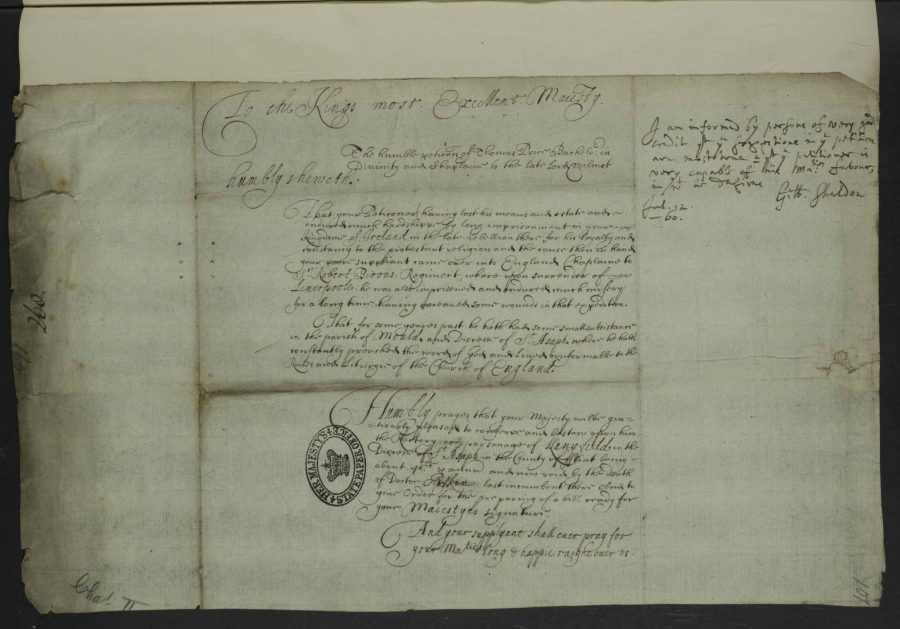 To the Kings most Excellent Maiesty.
The humble petic͠on of Thomas Prin Bachelor in
Divinity and Chaplaine to the late Lord Wilmot
humbly sheweth.
That your Peticoner having lost his means and estate and
endured much hardshipp by long imprisonment in your
Kingdome of Ireland in the late rebellion there, for his loyalty and
constancy to the protestant religion and the cause then in hand
your poore suppliant came over into England Chaplaine to
Sr. Robert Birons Regiment, where upon surrender of
Liverpoole he was also imprisoned and endured much misery
for a long time having receaued some wounds in that expedition.
That for some yeares past he hath had some small subsistance
in the parish of Moulds and Diocesse of St. Asaph where he hath
constantly preached the word of God and lived conformable to the
Rules and Liturgie of the Church of England.
Humbly prayes that your Majesty wilbe gra-
-tiously pleased to conferre and bestow upon him
the Rectory or parsonage of in the
Diocese of St Asaph in the County of fflint being
about yearly and now voyd by the death
of Doctor last incumbent there And to
give Order for the preparing of a bill ready for
your Maiestyes signature.
And your supplyant shall ever pray for
your Maties long & happie raigne over vs.
I am informed by persons of very good
credit yt ye suggestions in ys petition
are most true & ye petitioner is
very capable of that Maties favour,
Jul. 12.
-60.
Gilb. Sheldon
260.
HER MAJESTY'S STATE PAPER OFFICE
Chas. II
107